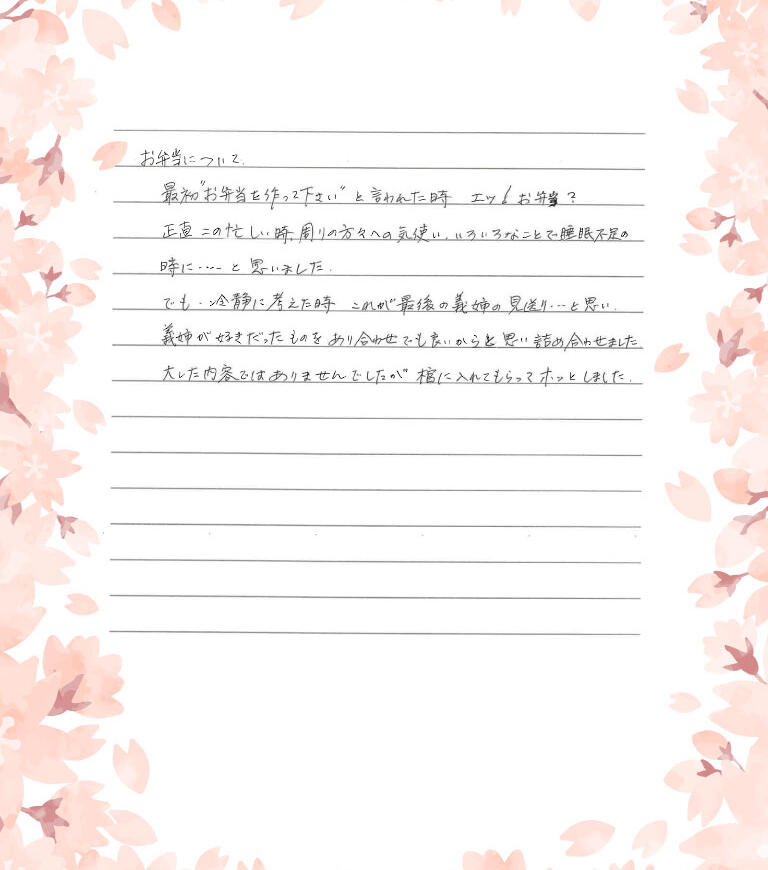 お弁当について、
最初"お弁当を作って下さい"と言われた時 エッ!お弁当?
正直この忙しい時、周りの方々への気使い、いろいろなことで睡眠不足の
時に‥‥と思いました。
でも、冷静に考えた時 これが最後の義姉の見送り‥‥と思い、
義姉が好きだったものをあり合わせでも良いからと思い詰め合わせました
大した内容ではありませんでしたが 棺に入れてもらってホッとしました。